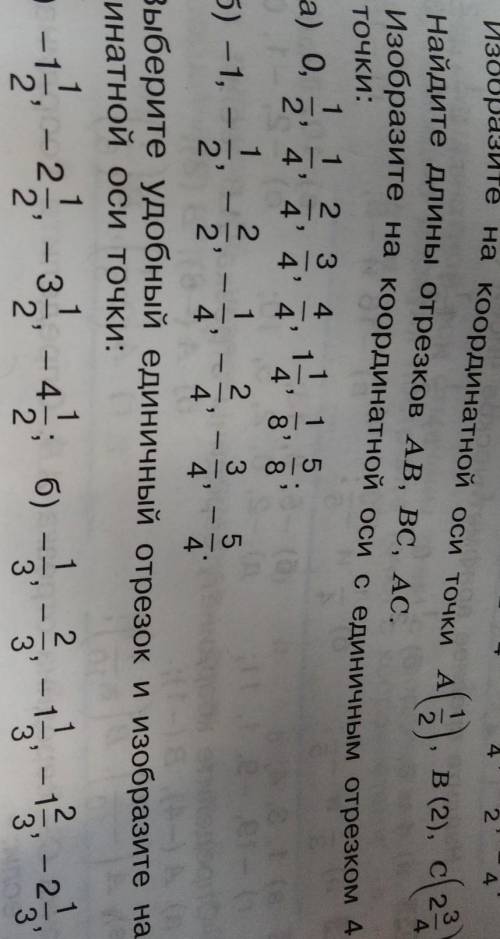 Изобразите на координатной оси точки A(1/2), B (2), C(2 3/4)
Найдите длины отрезков AB, BC, AC.
Изобразите на координатной оси с единичным отрезком 4
точки:
а) 0, 1/2, 1/4, 2/4, 3/4, 4/4, 1 1/4, 1/8, 5/8;
б) −1, −1/2, −2/2, −1/4, −2/4, −3/4, −5/4.
Выберите удобный единичный отрезок и изобразите на
инатной оси точки:
) −1 1/2, −2 1/2, −3 1/2, −4 1/2; б) −1/3, −2/3, −1 1/3, −1 2/3, −2 1/3,